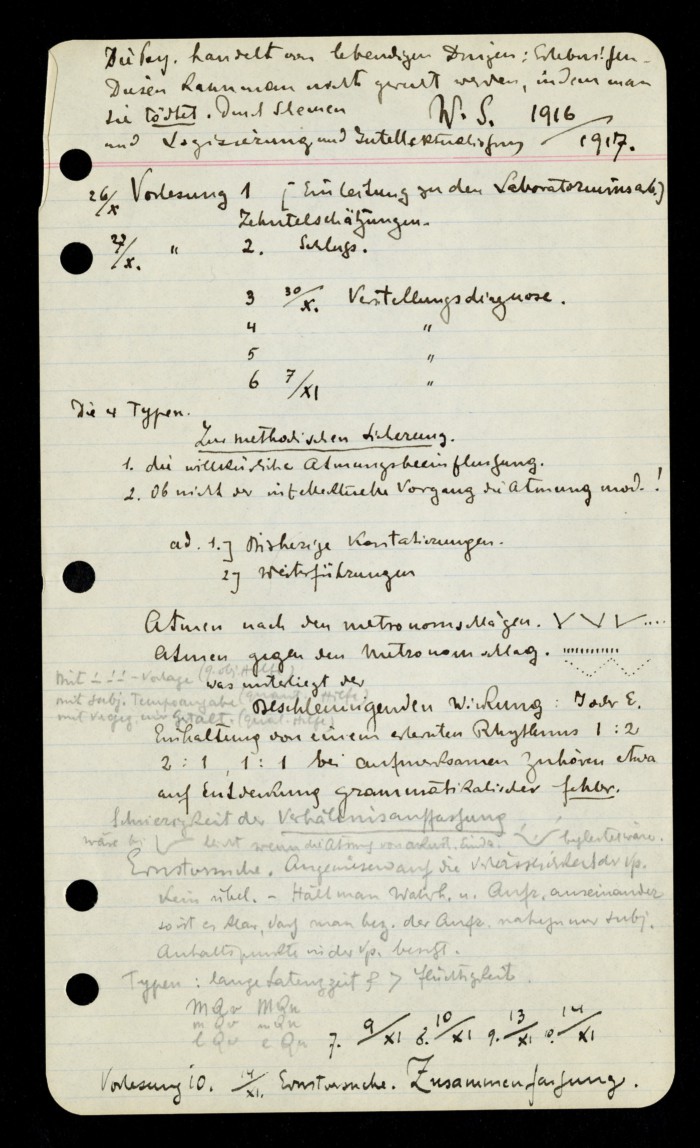 Die Psy. handelt von lebendigen Dingen; Erlebnissen.
Diesen kann man nicht gerecht werden, indem man
sie tödtet. Durch
und Logisierung und Intellektualisierung
W. S. 1916/1917.
26/X Vorlesung 1 [Einleitung zu den Laboratoriumsarb.]
Zehntelschätzungen.
27/X. " 2. Schluss.
3 30/X. Verstellungsdiagnose.
4 "
5 "
6 7/XI "
Die 4 Typen.
Zur methodischen Sicherung.
1. die willkürliche Atmungsbeeinflussung.
2. Ob nicht der intellektuelle Vorgang die Atmung mod.!
ad. 1.] Bisherige Konstatierungen.
2] Weiterführungen
Atmen nach den Metronomschlägen.
Atmen gegen den Metronomschlag.
Mit - Vorlage (q. obj. Hilfe)
was unterliegt der
mit subj. Tempoangabe (quant. Hilfe)
beschleunigenden Wirkung: I oder E.
Einhaltung von einem erlernten Rhythmus 1:2
2:1, 1:1 bei aufmerksamen Zuhören etwa
auf Entdeckung grammatikalischer Fehler.
Schwierigkeit der Verhältnisauffassung
wäre bei leicht wenn die Atmung
Ernstversuche. Angewiesen auf die der Vp.
kein übel. - Hält man Wahrh. u. Aufr. auseinander
so ist es klar, dass man bez. der Aufr. nahezu nur subj.
Anhaltspunkte in der Vp. besitzt.
Typen: lange Latenzzeit > Flüchtigkeit.
m Qv m Qn
m Qv m Qn
l Qv l Qn
7. 9/XI 8. 10/XI 9. 13/XI 10. 14/XI
Vorlesung 10. 14/XI. Ernstversuche. Zusammenfassung.